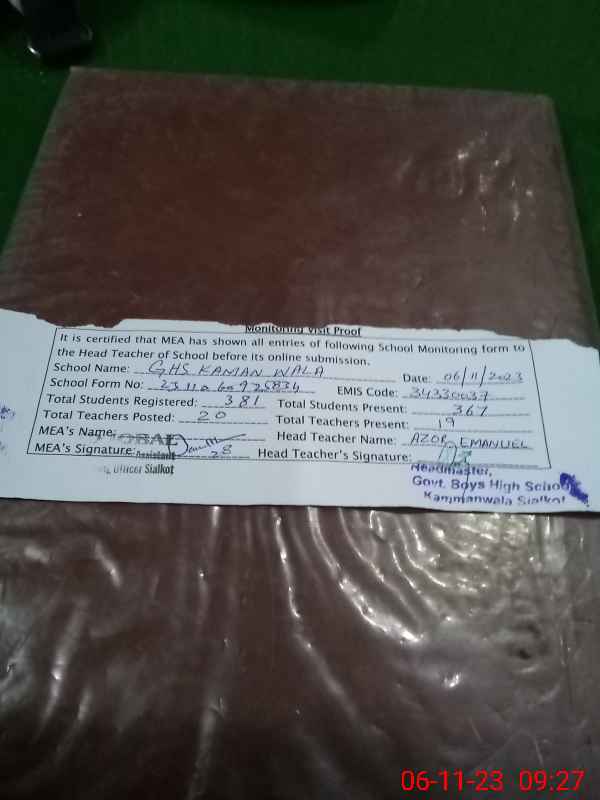 Monitoring Visit Proof
It is certified that MEA has shown all entries of following School Monitoring form to
the Head Teacher of School before its online submission.
School Name: GHS KAMAN WALA Date: 06/11/2023
School Form No: EMIS Code: 34330037
Total Students Registered: 381 Total Students Present: 367
Total Teachers Posted: 20 Total Teachers Present: 19
MEA's Name: Head Teacher Name: AZOR EMANUEL
MEA's Signature: Assistant 28 Head Teacher's Signature:
Officer Sialkot
Headmaster,
Govt. Boys High School
Kammanwala Sialkot
06-11-23 09:27